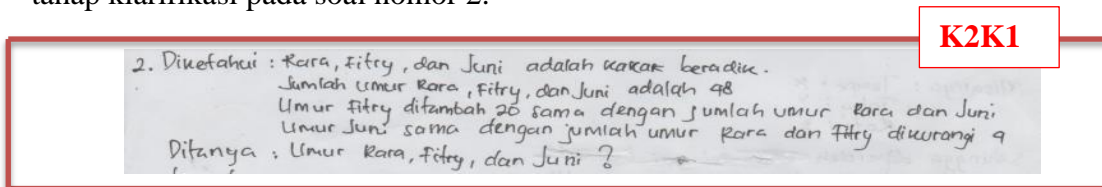 tahap klarifikasi pada soal nomor 2.
K2K1
2. Diketahui : Rara, Fitry, dan Juni adalah kakak beradik.
Jumlah umur Rara, Fitry, dan Juni adalah 48
Umur Fitry ditambah 20 sama dengan jumlah umur Rara dan Juni.
Umur Juni sama dengan jumlah umur Rara dan Fitry dikurangi 9
Ditanya : Umur Rara, Fitry, dan Juni ?